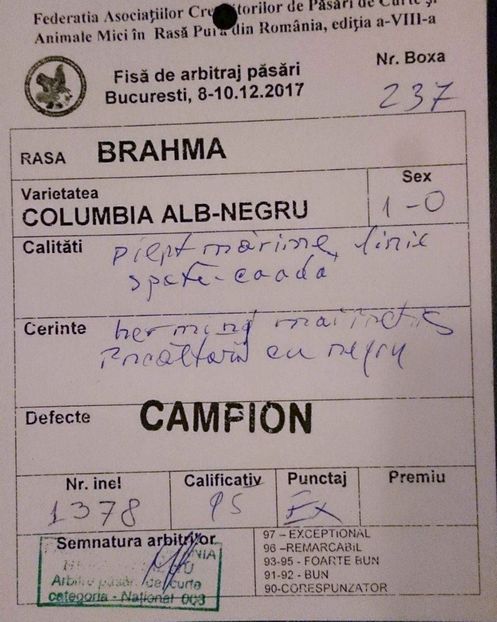 Federatia Asociațiilor Crescătorilor de Păsări de Curte și
Animale Mici în Rasă Pură din România, ediția a-VIII-a
Nr. Boxa
Fisă de arbitraj păsări
Bucuresti, 8-10.12.2017
237
RASA BRAHMA
Varietatea
Sex
COLUMBIA ALB-NEGRU
1-0
Calităti piept marime, linie
spate-coada
Cerinte
cu negru
Defecte CAMPION
Nr. inel Calificativ Punctaj Premiu
1378 95 Ex
Semnatura arbitrilor
Arbitru păsări de curte
categoria - National 003
97 – EXCEPTIONAL
96 –REMARCABIL
93-95 - FOARTE BUN
91-92 - BUN
90-CORESPUNZATOR